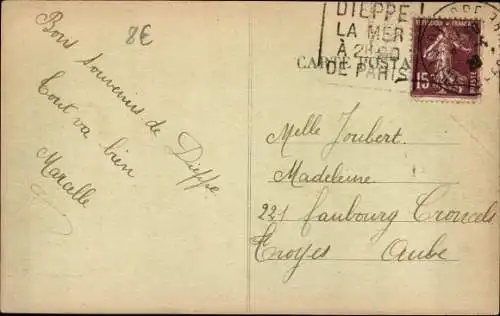 8€
Bons souvenirs de Dieppe
Tout va bien
Marcelle
DIEPPE
LA MER
À 2H
DE PARIS
CARTE POSTA
15
Melle Joubert
Madeleine
221 faubourg Croncels
Troyes Aube